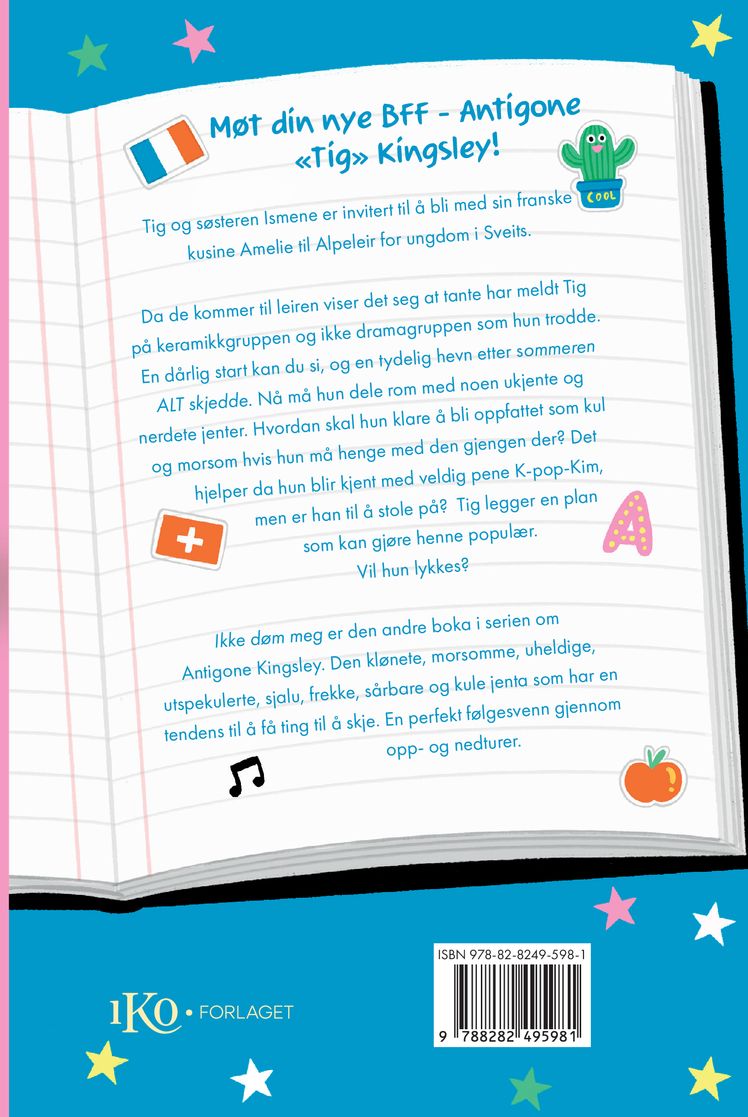 Møt din nye BFF – Antigone
«Tig» Kingsley!
COOL
Tig og søsteren Ismene er invitert til å bli med sin franske
kusine Amelie til Alpeleir for ungdom i Sveits.
Da de kommer til leiren viser det seg at tante har meldt Tig
på keramikkgruppen og ikke dramagruppen som hun trodde.
En dårlig start kan du si, og en tydelig hevn etter sommeren
ALT skjedde. Nå må hun dele rom med noen ukjente og
nerdete jenter. Hvordan skal hun klare å bli oppfattet som kul
og morsom hvis hun må henge med den gjengen der? Det
hjelper da hun blir kjent med veldig pene K-pop-Kim,
men er han til å stole på? Tig legger en plan
som kan gjøre henne populær.
Vil hun lykkes?
A
Ikke døm meg er den andre boka i serien om
Antigone Kingsley. Den klønete, morsomme, uheldige,
utspekulerte, sjalu, frekke, sårbare og kule jenta som har en
tendens til å få ting til å skje. En perfekt følgesvenn gjennom
opp- og nedturer.
ISBN 978-82-8249-598-1
9 788282 495981
IKO • FORLAGET